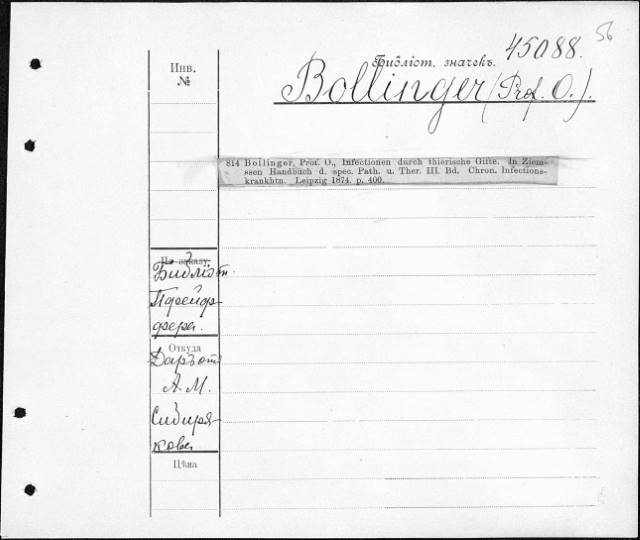 56
45088.
Библіот. значекъ.
Инв.
№
Bollinger (Prof. O.).
814 Bollinger, Prof. O., Infectionen durch thierische Gifte. In Ziem-
ssen Handbuch d. spec. Path. u. Ther. III. Bd. Chron. Infections-
krankhtn. Leipzig 1874. p. 400.
По заказу.
Библіот.
Пфейф-
фера.
Откуда
Даръ отъ
А. М.
Сибиря-
кова
Цѣна